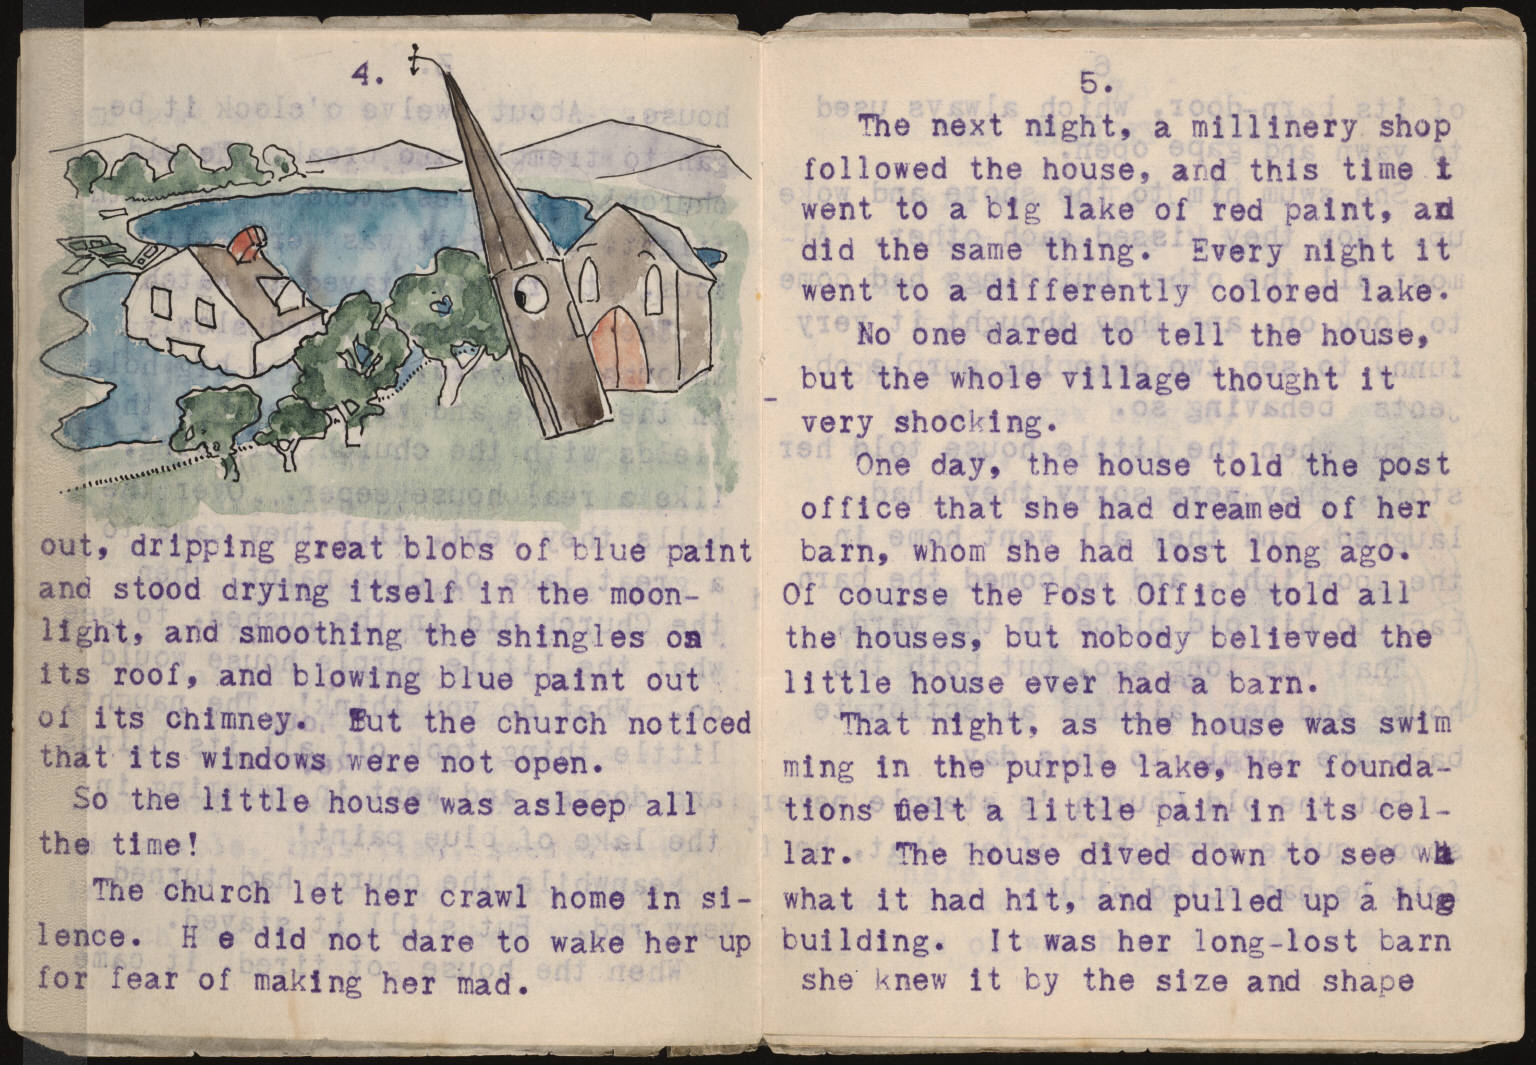 4.
out, dripping great blobs of blue paint
and stood drying itself in the moon-
light, and smoothing the shingles on
its roof, and blowing blue paint out
of its chimney. But the church noticed
that its windows were not open.
So the little house was asleep all
the time!
The church let her crawl home in si-
lence. H e did not dare to wake her up
for fear of making her mad.
5.
The next night, a millinery shop
followed the house, and this time i
went to a big lake of red paint, ad
did the same thing. Every night it
went to a differently colored lake.
No one dared to tell the house,
but the whole village thought it
very shocking.
One day, the house told the post
office that she had dreamed of her
barn, whom she had lost long ago.
Of course the Post Office told all
the houses, but nobody believed the
little house ever had a barn.
That night, as the house was swim
ming in the purple lake, her founda-
tions felt a little pain in its cel-
lar. The house dived down to see wh
what it had hit, and pulled up a huge
building. It was her long-lost barn
she knew it by the size and shape